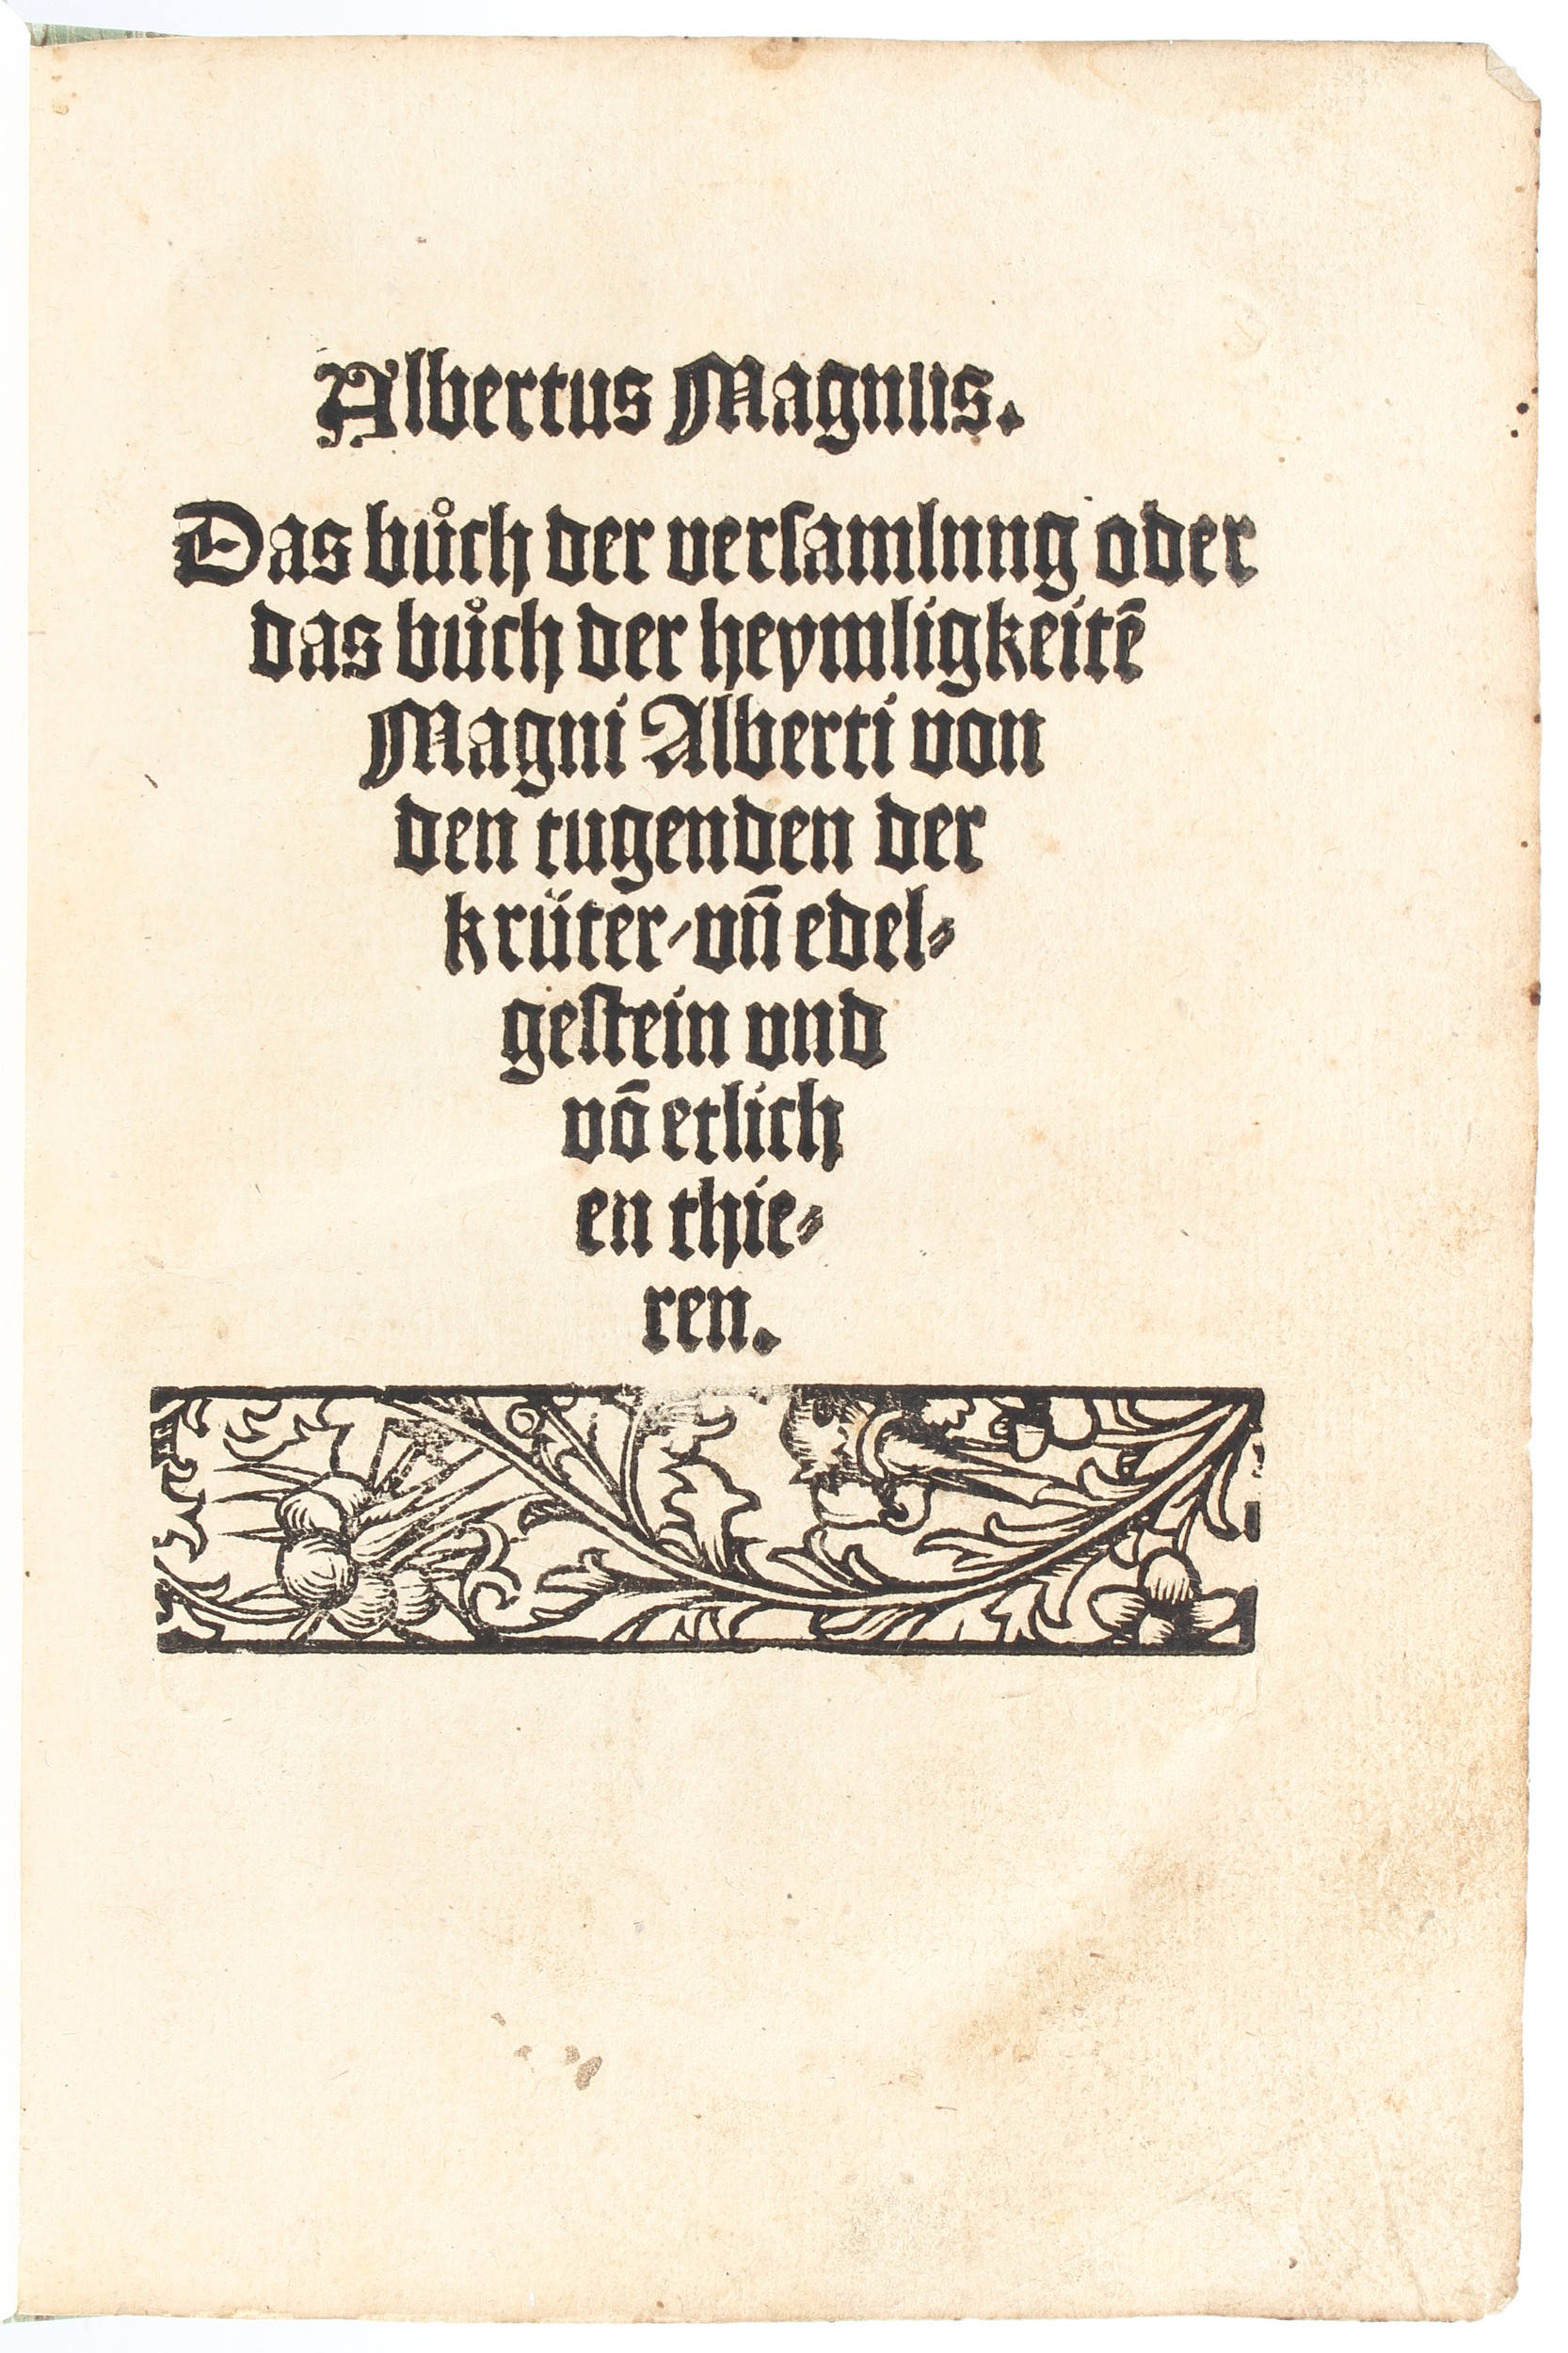 Albertus Magnus.
Das bůch der versamlung oder
das bůch der heymligkeitē
Magni Alberti von
den tugenden der
krüter/vn̄ edel⸗
gestein vnd
vō etlich
en thie⸗
ren.